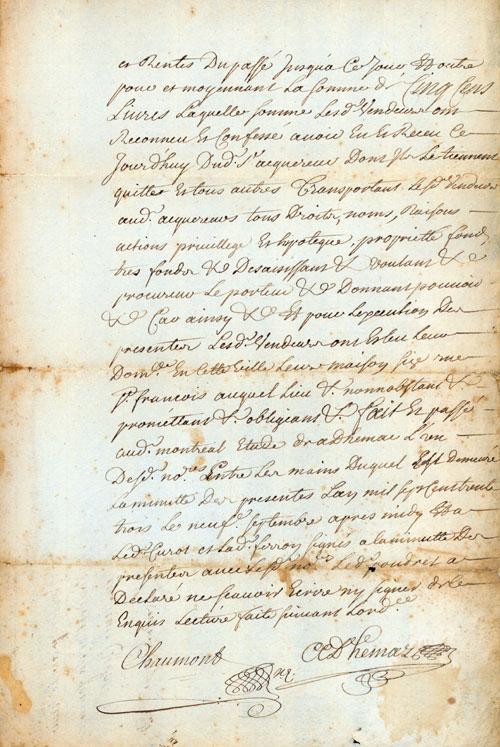 et Rentes Du passé Jusqu'à Ce Jour Et outre
pour et moyennant La somme de Cinq Cens
Livres Laquelle somme Lesd. Vendeurs ont
Reconneu Et Confessé avoir Eu Et Receu Ce
Jourd'huy Dud. Sr. acquereur Dont Ils Le tiennent
quitte Et tous autres Transportant Lesd. Vendeurs
aud. acquereurs tous Droits, noms, Raisons
actions privillege Et hypoteque, proprieté fond
tres fonds &c Desaisissant &c voulant &c
procureur Le porteur &c Donnant pouvoir
&c Car ainsy &c Et pour L'execution Des
presentes Lesd. Vendeurs ont Esleu Leur
Domlle En Cette Ville Leur maison size rue
St. francois auquel Lieu &c. nonnobstant &c
promettant &c. obligeant &c. fait Et passé
aud. montreal Etude dradhemar L'un
Desd. nores. Entre Les mains Duquel Est Demeuré
La minutte Des presentes L'an mil sept Cent trente
trois Le neufe. septembre apres midy Et a
Led. Curot et Lad. ferron signés a la minutte Des
presentes avec Lesd. nores. Led. Coudret a
Declaré ne scavoir Ecrire ny signer de Ce
Enquis Lecture faite suivant L'ordce
Chaumont CCDhemar